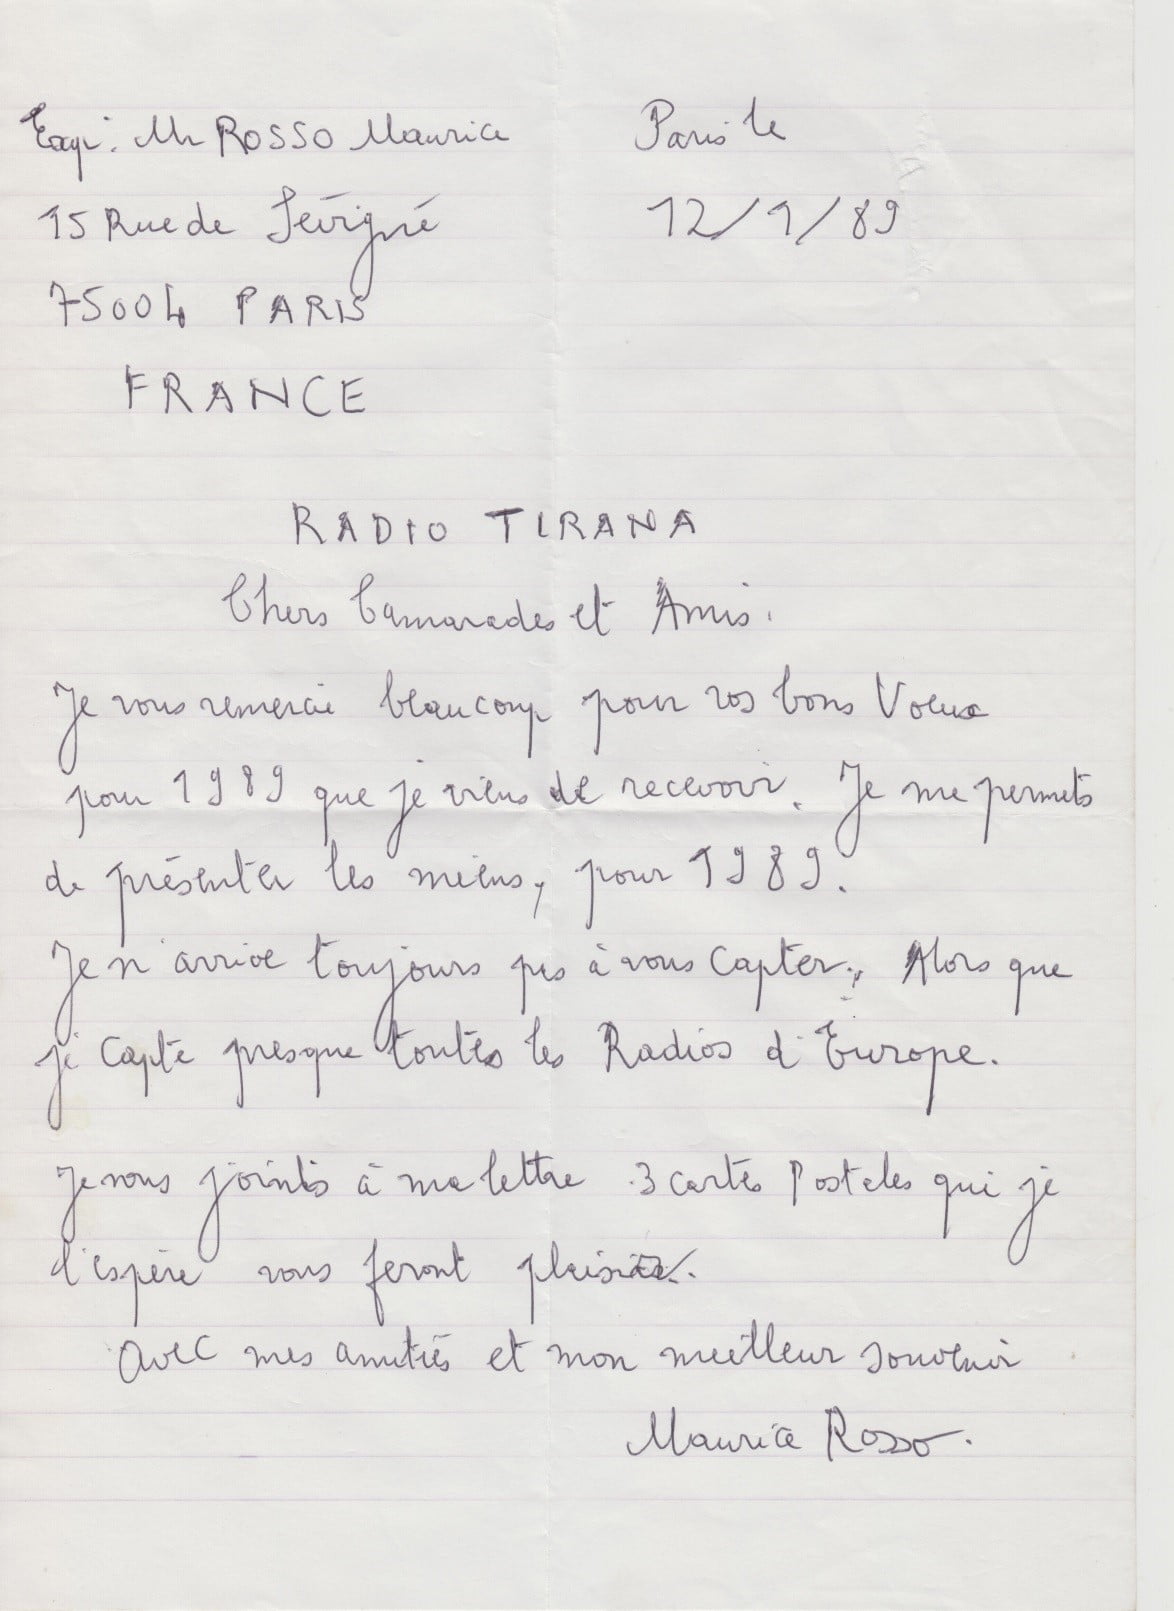 Exp: Mr ROSSO Maurice
Paris le
15 Rue de Sévigné
12/1/89
75004 PARIS
FRANCE
RADIO TIRANA
Chers Camarades et Amis.
Je vous remercie beaucoup pour vos bons Voeux
pour 1989 que je viens de recevoir. Je me permets
de présenter les miens, pour 1989.
Je n'arrive toujours pas à vous capter. Alors que
je capte presque toutes les Radios d'Europe.
Je vous joints à ma lettre 3 cartes Postales qui je
l'espère vous feront plaisir.
avec mes amitiés et mon meilleur souvenir
Maurice Rosso.